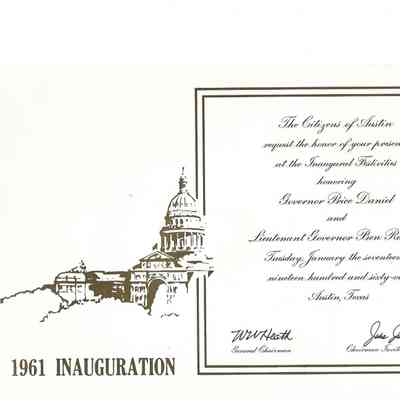 The Citizens of Austin
request the honor of your presen
at the Inaugural Festivities
honoring
Governor Price Daniel
and
Lieutenant Governor Ben Ra
Tuesday, January the seventeen
nineteen hundred and sixty-o
Austin, Texas
W W Heath
General Chairman
Jake
Chairman Invit
1961 INAUGURATION